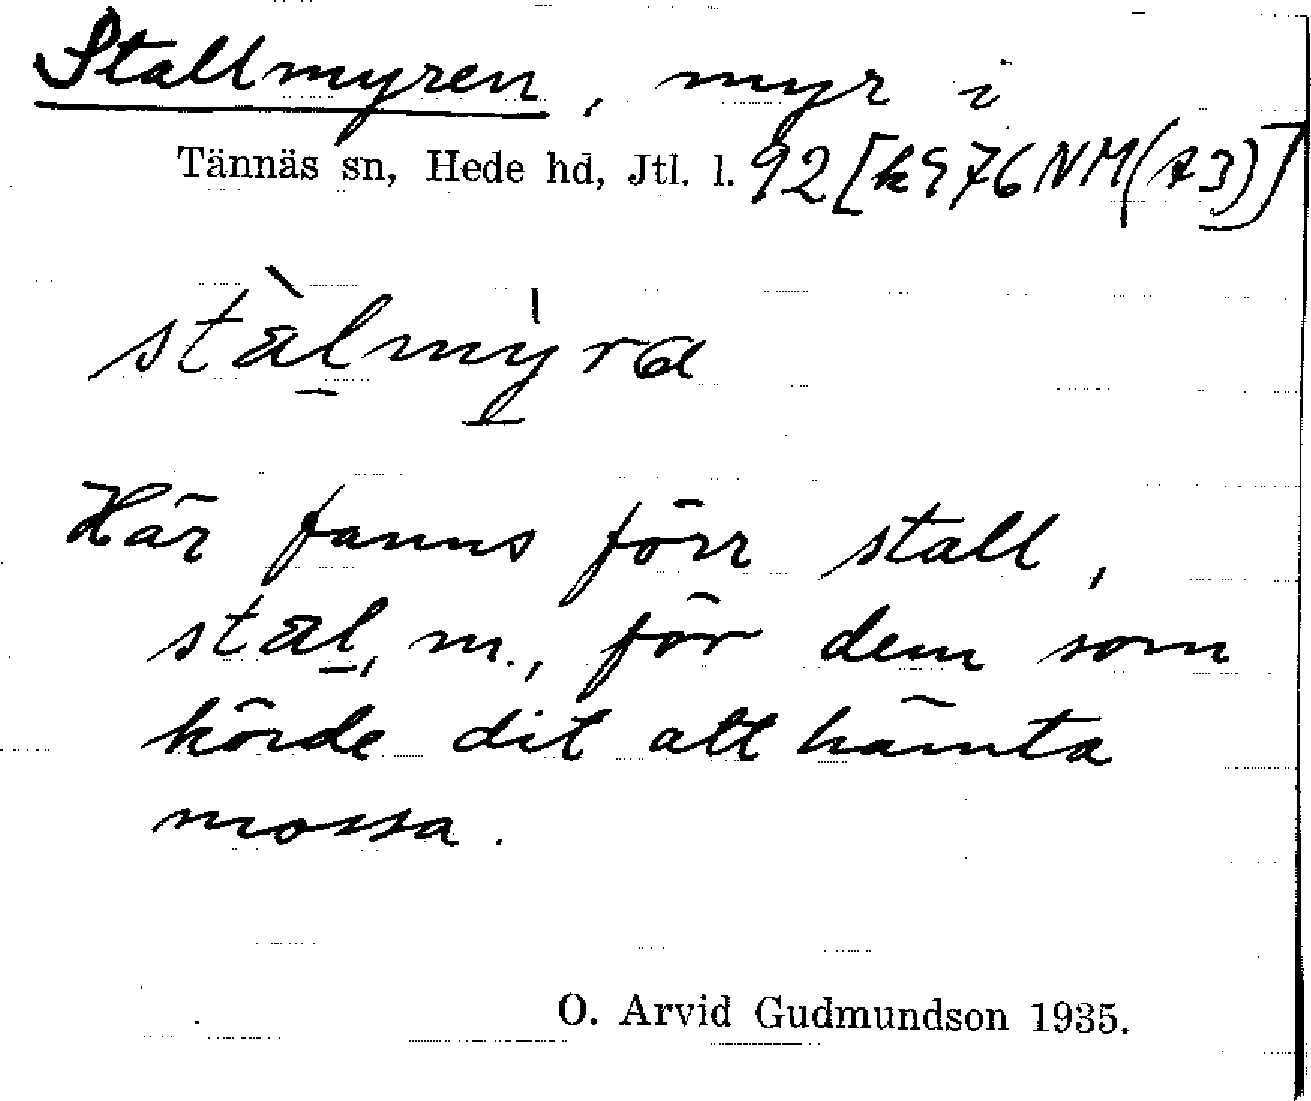 Stallmyren, myr i
Tännäs sn, Hede hd, Jtl. l. 92 [k976NM(A3)]
stàl̲mẏ̲ra
Här fanns förr stall,
stal̲, m., för dem som
körde dit att hämta
mossa.
O. Arvid Gudmundson 1935.